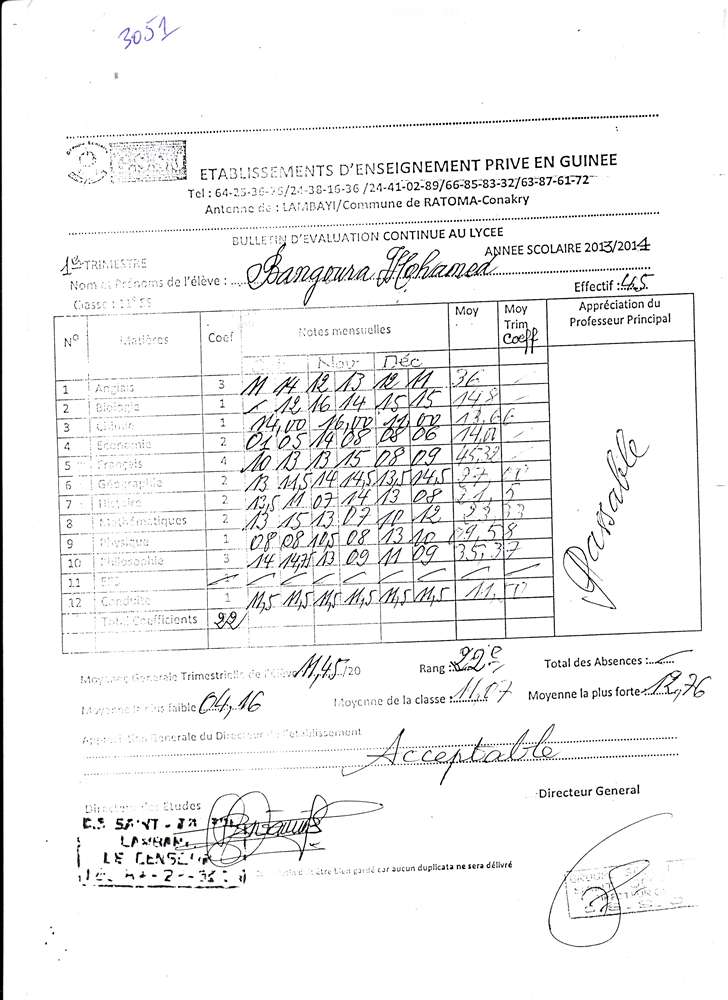 3051
ETABLISSEMENTS D'ENSEIGNEMENT PRIVE EN GUINEE
Tel : 64-25-36-76/24-38-16-36 /24-41-02-89/66-85-83-32/63-87-61-72
Antenne de : LAMBAYI/Commune de RATOMA-Conakry
BULLETIN D'EVALUATION CONTINUE AU LYCEE
1er TRIMESTRE ANNEE SCOLAIRE 2013/2014
Nom et Prénoms de l'élève : Bangoura Mohamed
Classe : 11e SS Effectif : 45
N° Matières Coef Notes mensuelles Moy Moy Trim Coeff Appréciation du Professeur Principal
Nov Déc
1 Anglais 3 11 14 12 13 12 11 36
2 Biologie 1 12 16 14 15 15 14,8
3 Chimie 1 14,00 16,00 11,00 13,66
4 Economie 2 01 05 19 08 08 06 14,00
5 Français 4 10 13 13 15 08 09 45,32
6 Géographie 2 13 11,5 14 14,5 13,5 14,5 27
7 Histoire 2 13,5 11 07 14 13 08 21,
8 Mathématiques 2 13 15 13 07 10 12 23,33
9 Physique 1 08 08 10,5 08 13 10 9,58
10 Philosophie 3 14 14,75 13 09 11 09 35,37
11 EPS 1
12 Conduite 1 11,5 11,5 11,5 11,5 11,5 11,5 11,50
Total Coefficients 22
Passable
Moyenne Generale Trimestrielle de l'élève 11,45/20 Rang : 22e Total des Absences :
Moyenne la plus faible 04,16 Moyenne de la classe : 11,07 Moyenne la plus forte 12,76
Appréciation Generale du Directeur de l'établissement
Acceptable
Directeur des Etudes Directeur General
LE CENSEUR
être bien gardé car aucun duplicata ne sera délivré